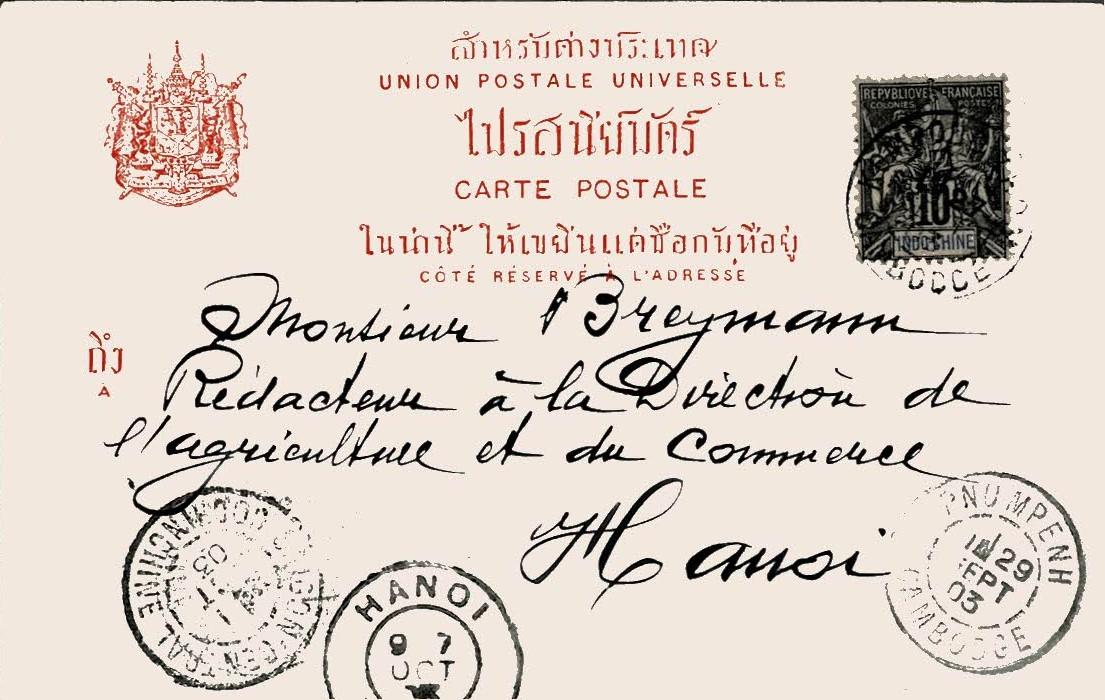 สำหรับต่างประเทศ
UNION POSTALE UNIVERSELLE
ไปรสนียบัตร์
CARTE POSTALE
ในน่านี้ ให้เขียนแต่ชื่อกับที่อยู่
CÔTÉ RÉSERVÉ À L'ADRESSE
REPUBLIQUE FRANÇAISE
COLONIES POSTES
10
INDO-CHINE
Monsieur Breymann
ถึง
À
Rédacteur à la Direction de
l'agriculture et du Commerce
Hanoi
SAIGON CENTRAL COCHINCHINE
03
HANOI
9 7
OCT
PNUMPENH
29
SEPT
03
CAMBODGE